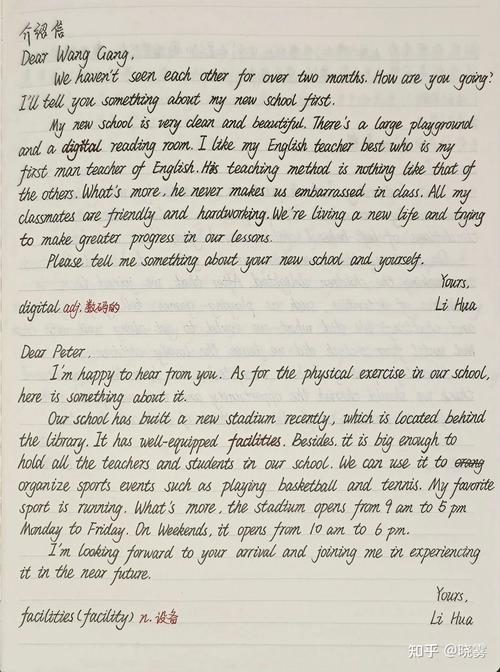 介绍信
Dear Wang Gang,
We haven't seen each other for over two months. How are you going?
I'll tell you something about my new school first.
My new school is very clean and beautiful. There's a large playground
and a digital reading room. I like my English teacher best who is my
first man teacher of English. His teaching method is nothing like that of
the others. What's more, he never makes us embarrassed in class. All my
classmates are friendly and hardworking. We're living a new life and trying
to make greater progress in our lessons.
Please tell me something about your new school and yourself.
Yours,
Li Hua
digital adj. 数码的
Dear Peter,
I'm happy to hear from you. As for the physical exercise in our school,
here is something about it.
Our school has built a new stadium recently, which is located behind
the library. It has well-equipped facilities. Besides, it is big enough to
hold all the teachers and students in our school. We can use it to orang
organize sports events such as playing basketball and tennis. My favorite
sport is running. What's more, the stadium opens from 9 am to 5 pm
Monday to Friday. On Weekends, it opens from 10 am to 6 pm.
I'm looking forward to your arrival and joining me in experiencing
it in the near future.
Yours,
Li Hua
facilities (facility) n. 设备
知乎 @晓雾